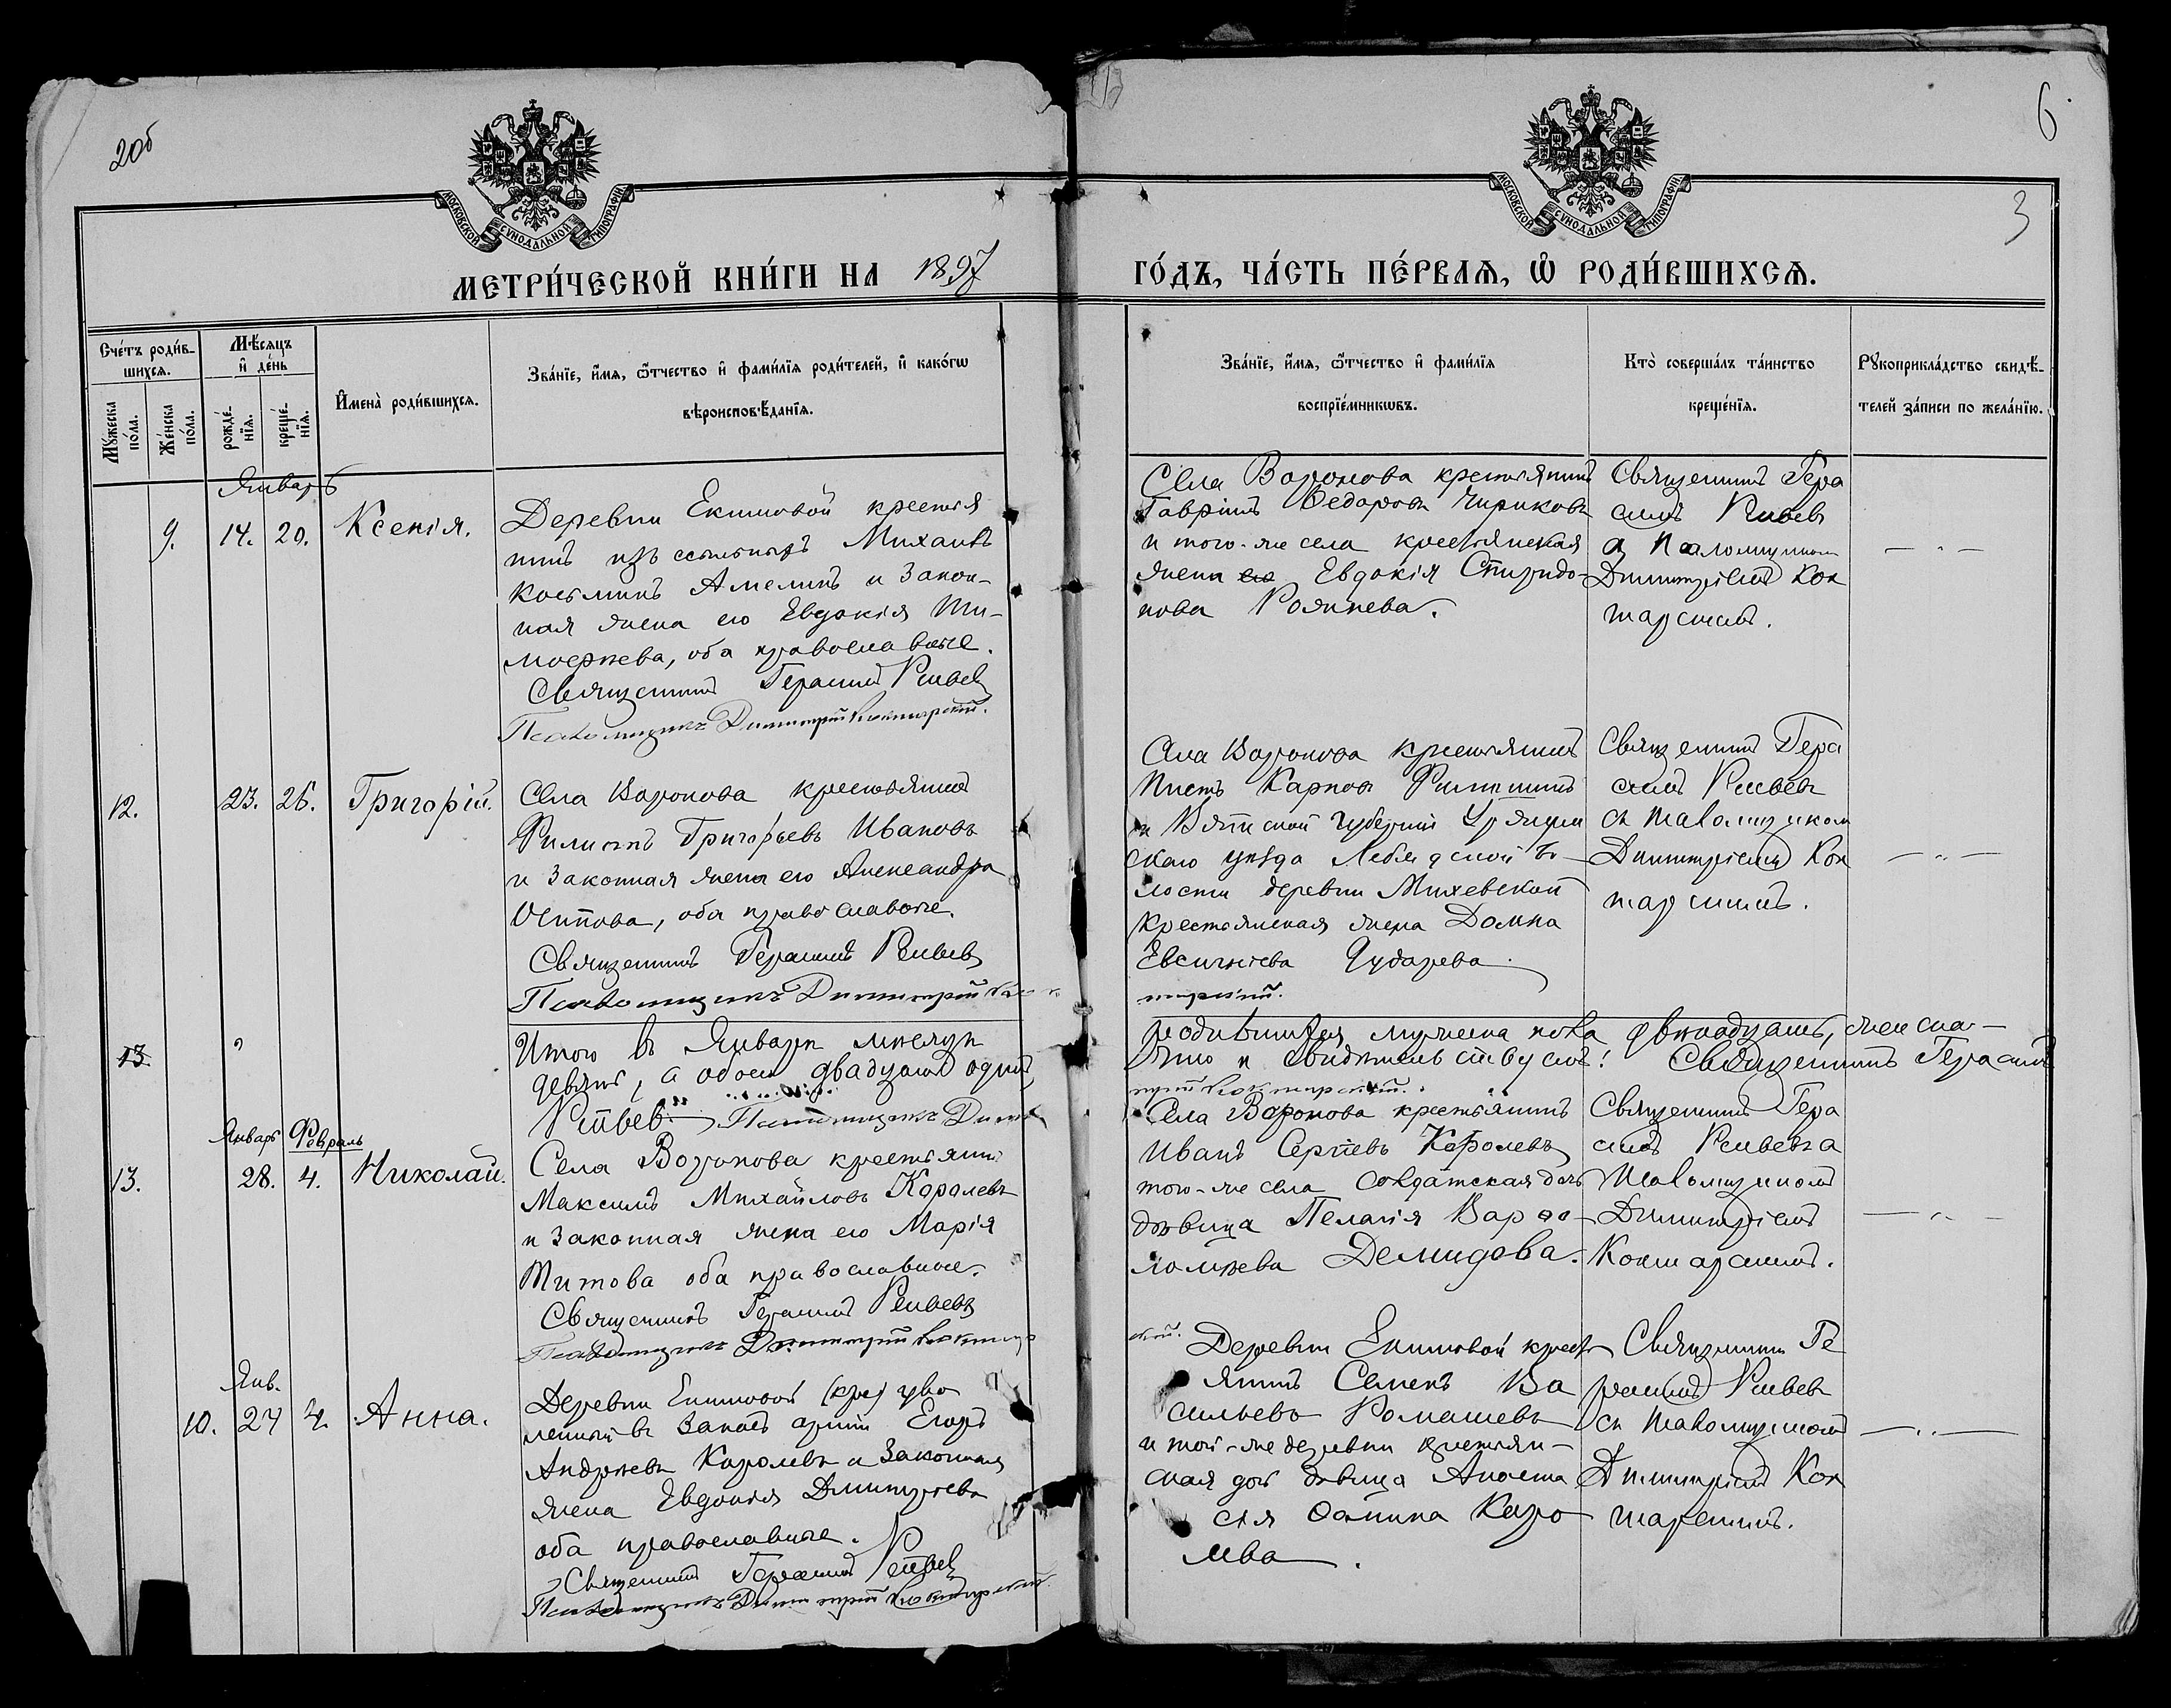 20б
6.
3
МОСКОВСКОЙ СУНОДАЛЬНОЙ ТИПОГРАФІИ
МОСКОВСКОЙ СУНОДАЛЬНОЙ ТИПОГРАФІИ
МЕТРИ́ЧЕСКОЙ КНИ́ГИ НА 1897 ГО́ДЪ, ЧА́СТЬ ПЕ́РВАѦ, Ѡ҆ РОДИ́ВШИХСѦ.
Сче́тъ роди́в-
шихсѧ.
Мꙋ́жеска
по́ла.
Же́нска
по́ла.
Мѣ́сѧцъ
и҆ де́нь
рожде́-
нїѧ.
креще́-
нїѧ.
И҆мена̀ роди́вшихсѧ.
Зва́нїе, и҆́мѧ, ѻ҆́тчество и҆ фами́лїѧ роди́телей, и҆ како́гѡ
вѣроисповѣ́данїѧ.
Зва́нїе, и҆́мѧ, ѻ҆́тчество и҆ фами́лїѧ
воспрїе́мникѡвъ.
Кто̀ соверша́лъ та́инство
креще́нїѧ.
Рꙋкоприкла́дство свидѣ́-
телей за́писи по жела́нїю.
Январь
9. 14. 20. Ксенія.
Деревни Екимовой крестья
нинъ изъ ссыльныхъ Михаилъ
Косьминъ Амелинъ и закон-
ная жена его Евдокія Ти-
моѳеева, оба православные.
Священникъ Герасимъ
Псаломщикъ Димитрій Кокшарскій.
Села Воронова крестьянинъ
Гавріилъ Ѳедоровъ Чириковъ
и того-же села крестьянская
жена Евдокія Спиридо-
нова
Священникъ Гера
симъ
Псаломщикомъ
Димитріемъ Кок
шарскимъ.
12. 23. 26. Григорій.
Села Воронова крестьянинъ
Филиппъ Григорьевъ Ивановъ
и законная жена его Александра
Осипова, оба православные.
Священникъ Герасимъ
Псаломщикъ Димитрій Кок
шарскій.
Села Воронова крестьянинъ
Карповъ
и Вятской губерніи Уржум
скаго уѣзда Лебяжской во-
лости деревни Михеевской
крестьянская жена Домна
Евсигнѣева
Священникъ Гера
симъ
съ Псаломщиком
Димитріемъ Кок
шарскимъ.
13
Итого въ Январѣ мѣсяцѣ родившихся мужеска пола двѣнадцать, женска-
девять, а обоего двадцать одинъ, что и свидѣтельствуемъ! Священникъ Герасимъ
Псаломщикъ Димитрій Кокшарскій.
Январь Февраль
13. 28. 4. Николай.
Села Воронова крестьянинъ
Максимъ Михайловъ Королевъ
и законная жена его Марія
Титова оба православные.
Священникъ Герасимъ
Псаломщикъ Димитрій Кокшар
скій.
Села Воронова крестьянинъ
Иванъ Сергѣевъ Королевъ
того-же села солдатская дочь
дѣвица Пелагія Варѳо-
ломѣева Демидова.
Священникъ Гера
симъ
Псаломщикомъ
Димитріемъ
Кокшарскимъ.
Янв.
10. 27 4. Анна.
Деревни Екимовой (кре) уво
ленный въ запасъ арміи Егоръ
Андреевъ Королевъ и законная
жена Евдокія Дмитріева
оба православные.
Священникъ Герасимъ
Псаломщикъ Димитрій Кокшарскій.
Деревни Екимовой кресть
янинъ Семенъ Ва
сильевъ Ромашевъ
и той-же деревни крестьян-
ская дочь дѣвица Анаста
сія Ѳомина Коро
лева.
Священникъ Ге
расимъ
съ Псаломщикомъ
Димитріемъ Кок
шарскимъ.